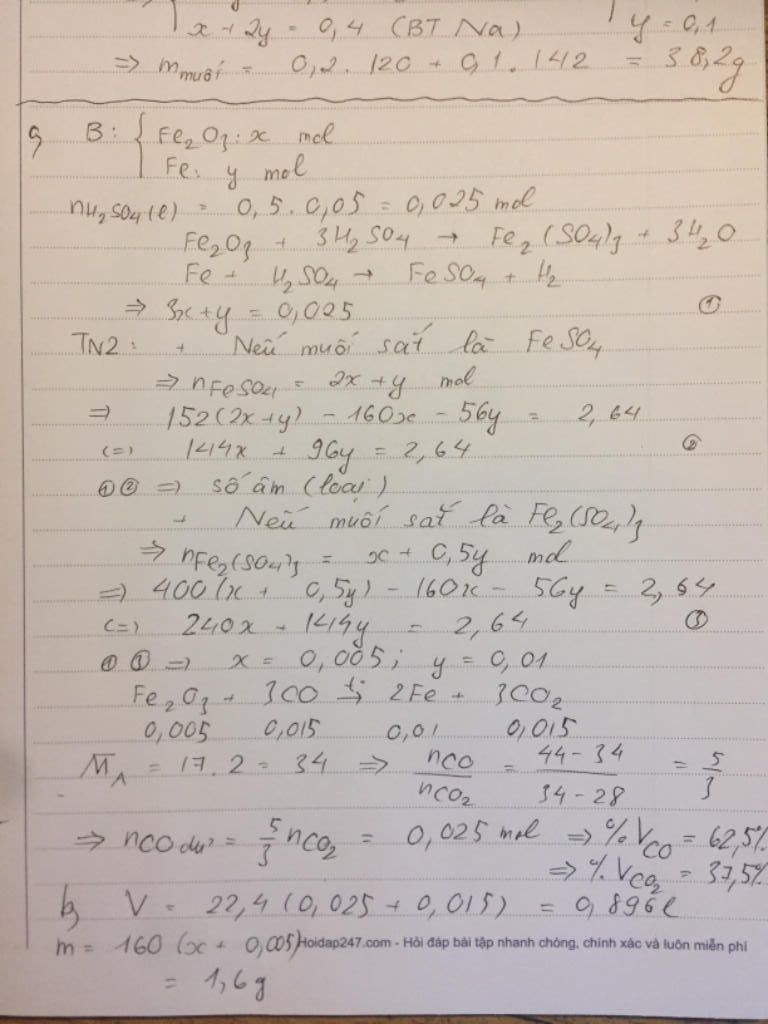 x + 2y = 0,4 (BT Na) y = 0,1
=> m muối = 0,2 . 120 + 0,1 . 142 = 38,2g
a, B: { Fe₂O₃: x mol
Fe: y mol
nH₂SO₄(l) = 0,5 . 0,05 = 0,025 mol
Fe₂O₃ + 3H₂SO₄ → Fe₂(SO₄)₃ + 3H₂O
Fe + H₂SO₄ → FeSO₄ + H₂
=> 3x + y = 0,025 ①
TN2: + Nếu muối sắt là FeSO₄
=> nFeSO₄ = 2x + y mol
=> 152(2x + y) - 160x - 56y = 2,64
(=) 144x + 96y = 2,64 ②
① ② => số âm (loại)
+ Nếu muối sắt là Fe₂(SO₄)₃
=> nFe₂(SO₄)₃ = x + 0,5y mol
=> 400(x + 0,5y) - 160x - 56y = 2,64
(=) 240x + 144y = 2,64 ③
① ③ => x = 0,005; y = 0,01
Fe₂O₃ + 3CO →(t°) 2Fe + 3CO₂
0,005 0,015 0,01 0,015
M̅A = 17.2 = 34 => nCO/nCO₂ = (44 - 34)/(34 - 28) = 5/3
=> nCO dư = 5/3 nCO₂ = 0,025 mol => %VCO = 62,5%
=> %VCO₂ = 37,5%
b, V = 22,4 (0,025 + 0,015) = 0,896l
m = 160 (x + 0,005) Hoidap247.com - Hỏi đáp bài tập nhanh chóng, chính xác và luôn miễn phí
= 1,6g